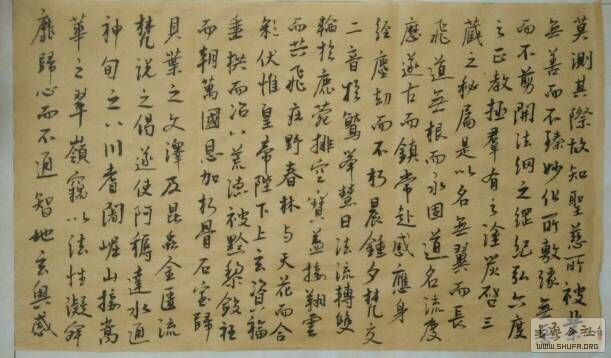 莫測其際故知聖慈所被業
無善而不臻妙化所敷緣無
而不剪開法網之綱紀弘六度
之正教拯羣有之塗炭啓三
藏之秘扃是以名無翼而長
飛道無根而永固道名流慶
歷遂古而鎮常赴感應身
經塵劫而不朽晨鍾夕梵交
二音於鷲峯慧日法流轉雙
輪於鹿菀排空寶蓋接翔雲
而共飛庄野春林与天花而合
彩伏惟皇帝陛下上玄資福
垂拱而治八荒德被黔黎斂衽
而朝萬國恩加朽骨石室歸
貝葉之文澤及昆蟲金匱流
梵說之偈遂使阿耨達水通
神甸之八川耆闍崛山接嵩
華之翠嶺竊以法性凝寂
靡歸心而不通智地玄奧感
WWW.SHUFA.ORG